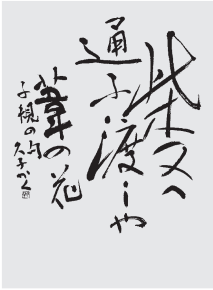 柴又へ
通ふ渡しや
葦の花
子規の句
久子かく